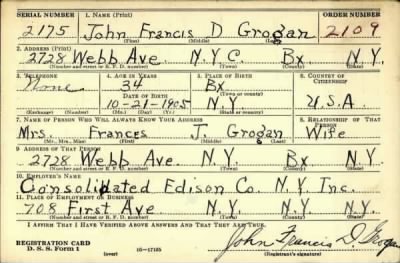 SERIAL NUMBER 1. NAME (Print) ORDER NUMBER
2175 John Francis D Grogan 2109
(First) (Middle) (Last)
2. ADDRESS (Print)
2728 Webb Ave N.Y.C. Bx N.Y.
(Number and street or R. F. D. number) (Town) (County) (State)
3. TELEPHONE 4. AGE IN YEARS 5. PLACE OF BIRTH 6. COUNTRY OF CITIZENSHIP
None 34 Bx
DATE OF BIRTH (Town or county)
10-21-1905 N.Y. U.S.A
(Exchange) (Number) (Mo.) (Day) (Yr.) (State or country)
7. NAME OF PERSON WHO WILL ALWAYS KNOW YOUR ADDRESS 8. RELATIONSHIP OF THAT PERSON
Mrs. Frances J. Grogan Wife
(Mr., Mrs., Miss) (First) (Middle) (Last)
9. ADDRESS OF THAT PERSON
2728 Webb Ave. N.Y. Bx N.Y.
(Number and street or R. F. D. number) (Town) (County) (State)
10. EMPLOYER'S NAME
Consolidated Edison Co. N.Y. Inc.
11. PLACE OF EMPLOYMENT OR BUSINESS
708 First Ave N.Y. N.Y. N.Y.
(Number and street or R. F. D. number) (Town) (County) (State)
I AFFIRM THAT I HAVE VERIFIED ABOVE ANSWERS AND THAT THEY ARE TRUE.
REGISTRATION CARD
D. S. S. Form 1 (over) 16-17105 John Francis D. Grogan